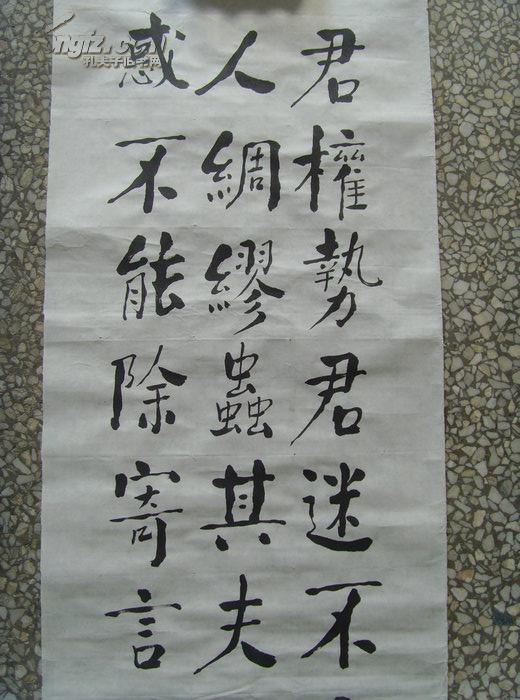 君權勢君迷不
人綢繆蟲其夫
惑不能除寄言
孔夫子旧书网